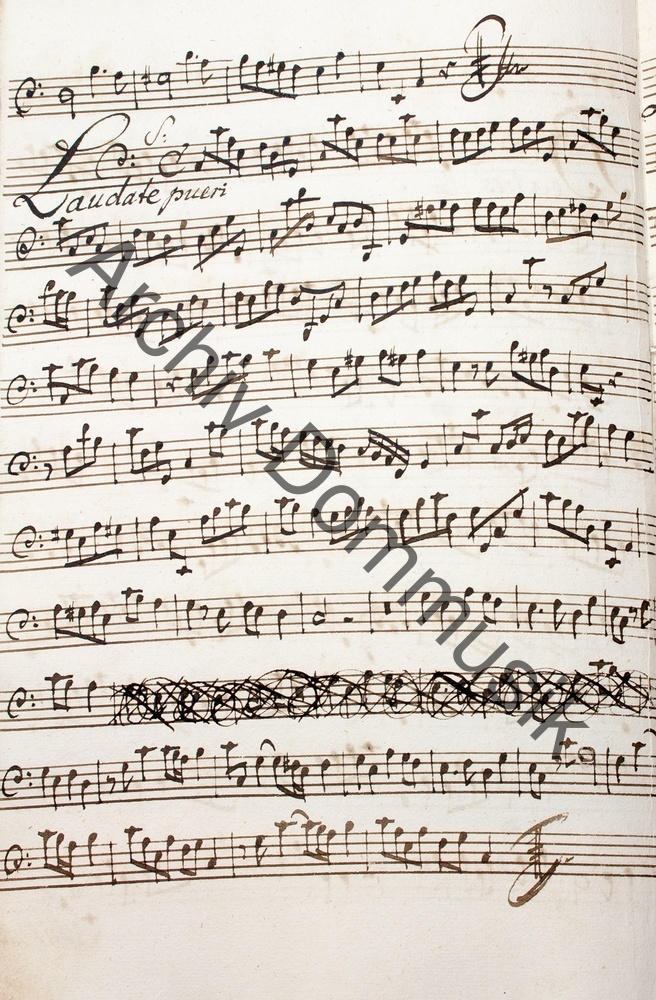 S:
Laudate pueri
Archiv Dommusik